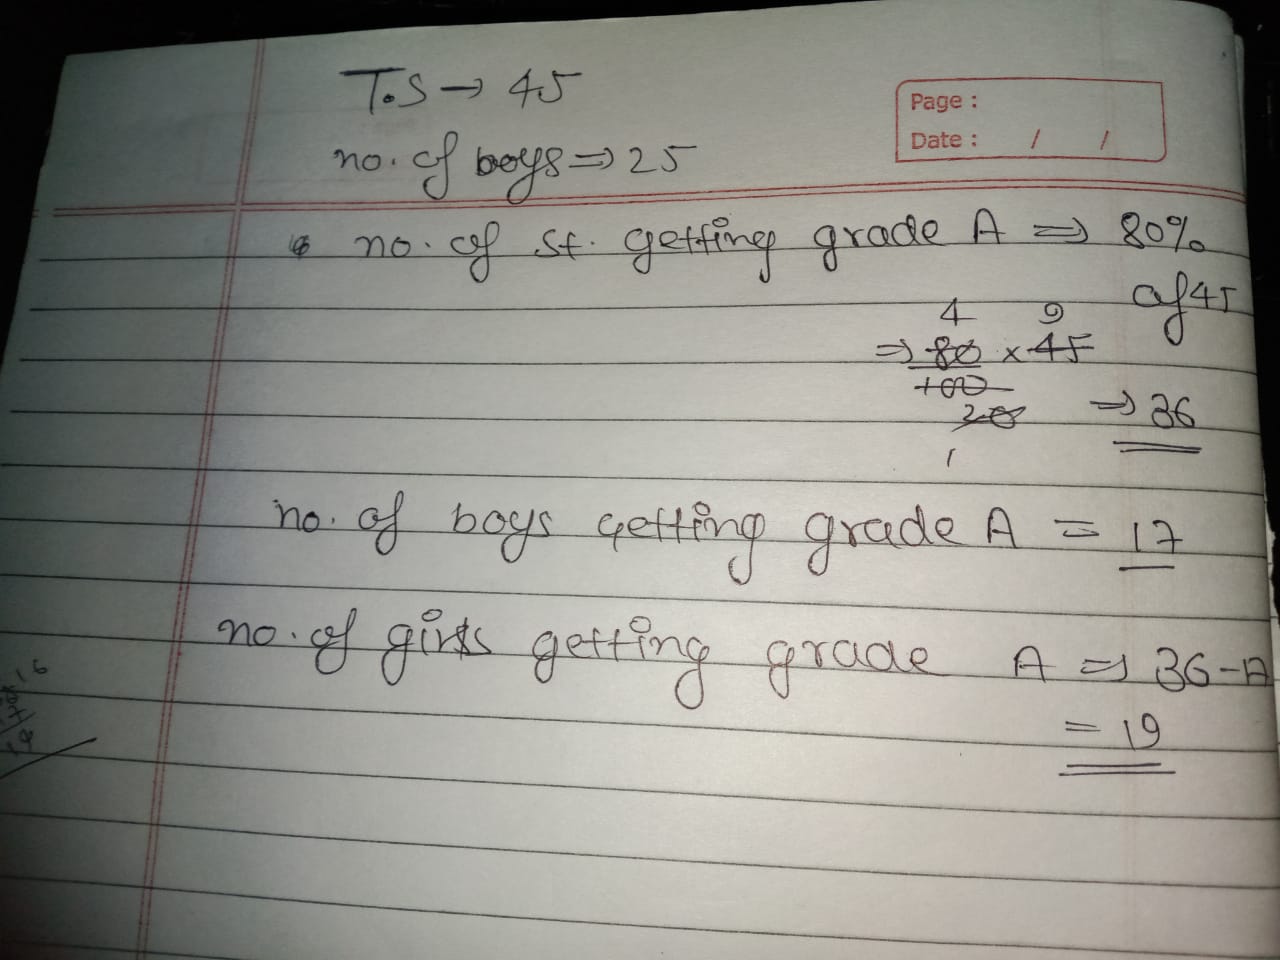 T.S → 45
Page :
no. of boys ⇒ 25
Date : / /
no. of st. getting grade A ⇒ 80%
of 45
4 9
⇒ 80 x 45
100
20 ⇒ 36
1
no. of boys getting grade A = 17
no. of girls getting grade A ⇒ 36 - 17
= 19